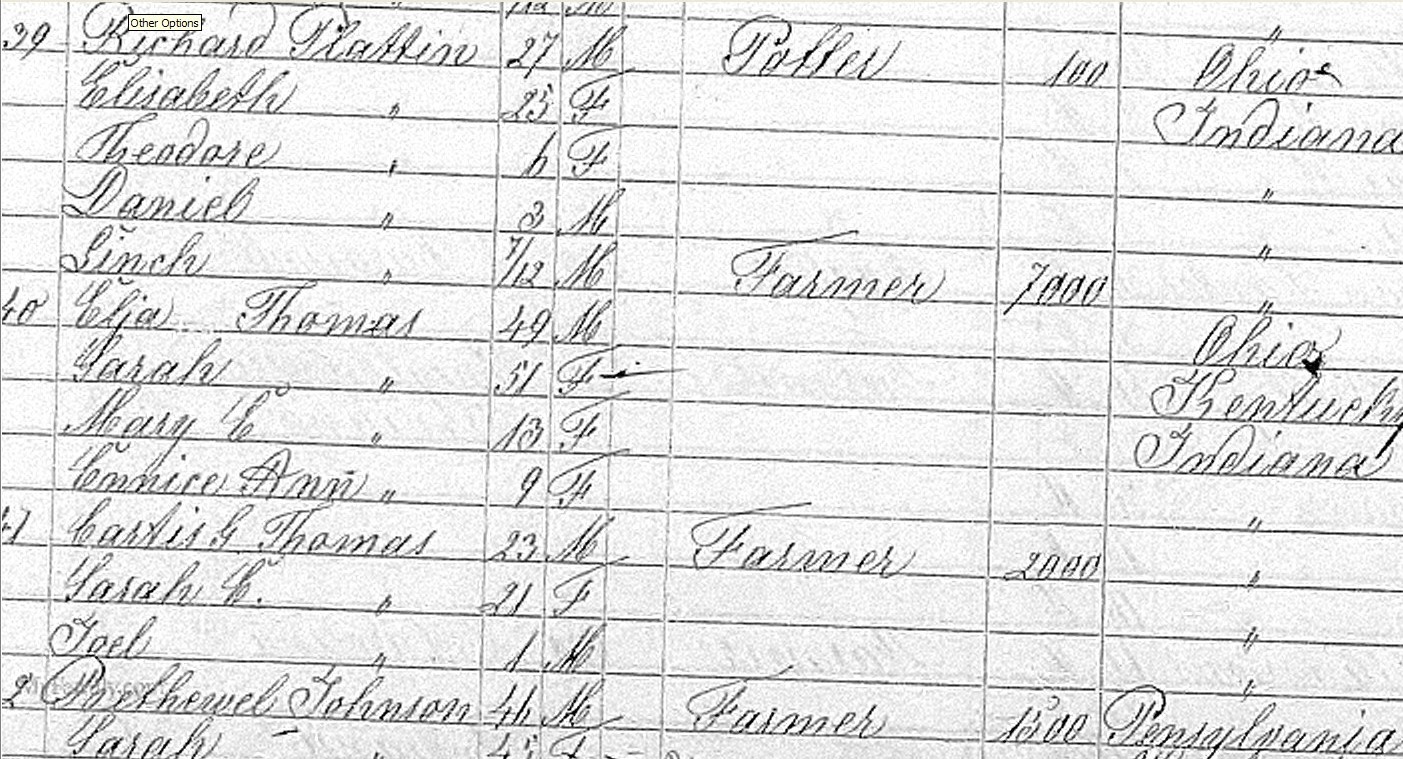 Other Options
39 Richard Plattin 27 M Potter 100 Ohio
Elisabeth " 25 F Indiana
Theodore " 6 F "
Daniel " 3 M "
Linch " 7/12 M Farmer 7000 "
40 Elja Thomas 49 M Ohio
Sarah " 51 F Kentucky
Mary E " 13 F Indiana
Ennice Ann " 9 F "
41 Cartis G Thomas 23 M Farmer 2000 "
Sarah E. " 21 F "
Joel " 1 M "
2 Johnson 46 M Farmer 1500 Pensylvania
Sarah " 45 F